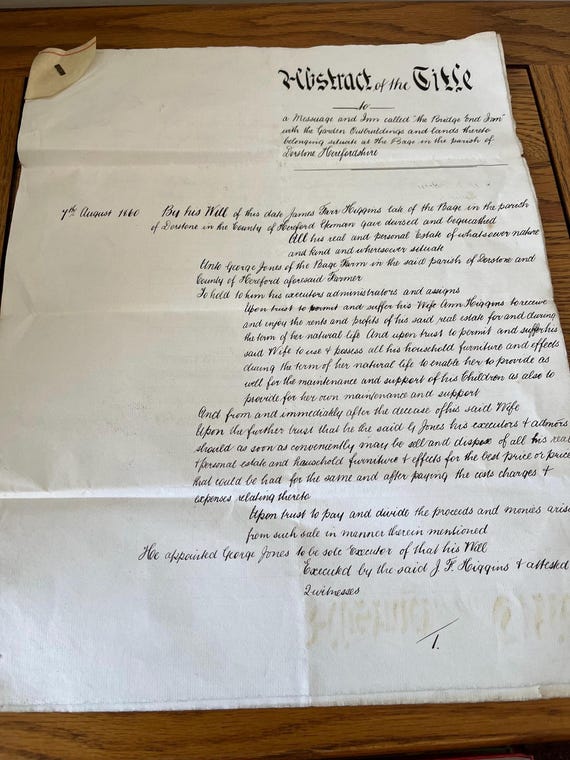 Abstract of the Title
to
a Messuage and Inn called "the Bridge End Inn"
with the Garden Outbuildings and lands thereto
belonging situate at the Bage in the parish of
Dorstone Herefordshire
7th August 1860 By his Will of this date James Farr Higgins late of the Bage in the parish
of Dorstone in the County of Hereford Yeoman gave devised and bequeathed
All his real and personal Estate of whatsoever nature
and kind and wheresoever situate
Unto George Jones of the Bage Farm in the said parish of Dorstone and
County of Hereford aforesaid Farmer
To hold to him his executors administrators and assigns
Upon trust to permit and suffer his Wife Ann Higgins to receive
and enjoy the rents and profits of his said real estate for and during
the term of her natural life And upon trust to permit and suffer his
said Wife to use & possess all his household furniture and effects
during the term of her natural life to enable her to provide as
well for the maintenance and support of his Children as also to
provide for her own maintenance and support
And from and immediately after the decease of his said Wife
Upon the further trust that he the said G Jones his executors & admors
should as soon as conveniently may be sell and dispose of all his real
& personal estate and household furniture & effects for the best price or price
that could be had for the same and after paying the costs charges &
expenses relating thereto
Upon trust to pay and divide the proceeds and monies aris
from such sale in manner therein mentioned
He appointed George Jones to be sole Executor of that his Will
Executed by the said J F Higgins & attested
2 witnesses
1.